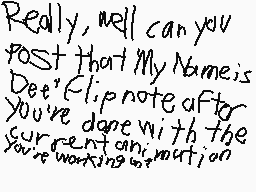 Really, well can you
post that My Name is
Dee" flipnote after
you're done with the
current animation
you're working on?